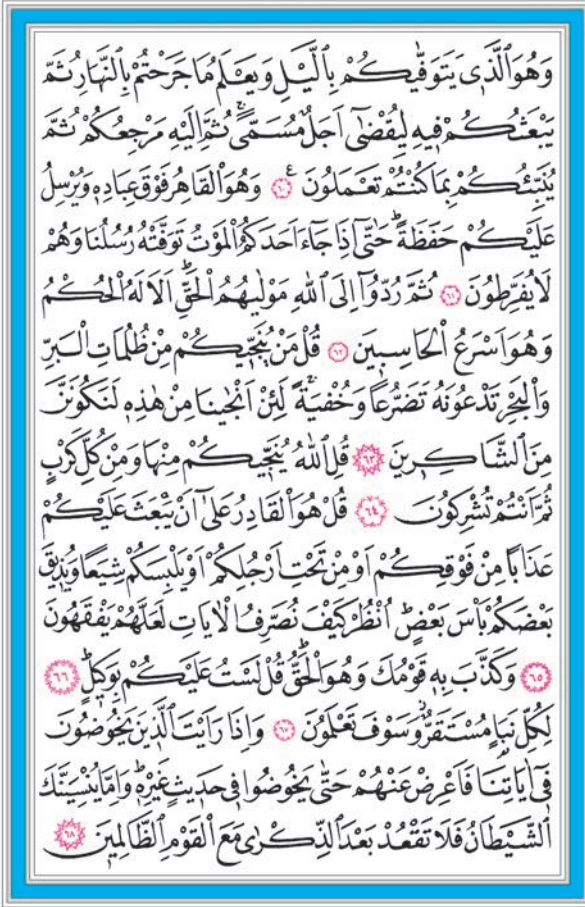 وَهُوَ الَّذٖي يَتَوَفّٰيكُمْ بِالَّيْلِ وَيَعْلَمُ مَا جَرَحْتُمْ بِالنَّهَارِ ثُمَّ
يَبْعَثُكُمْ فٖيهِ لِيُقْضٰٓى اَجَلٌ مُسَمًّىۚ ثُمَّ اِلَيْهِ مَرْجِعُكُمْ ثُمَّ
يُنَبِّئُكُمْ بِمَا كُنْتُمْ تَعْمَلُونَ ﴿٦٠﴾ ع وَهُوَ الْقَاهِرُ فَوْقَ عِبَادِهٖ وَيُرْسِلُ
عَلَيْكُمْ حَفَظَةًؕ حَتّٰٓى اِذَا جَٓاءَ اَحَدَكُمُ الْمَوْتُ تَوَفَّتْهُ رُسُلُنَا وَهُمْ
لَا يُفَرِّطُونَ ﴿٦١﴾ ثُمَّ رُدُّٓوا اِلَى اللّٰهِ مَوْلٰيهُمُ الْحَقِّؕ اَلَا لَهُ الْحُكْمُ
وَهُوَ اَسْرَعُ الْحَاسِبٖينَ ﴿٦٢﴾ قُلْ مَنْ يُنَجّٖيكُمْ مِنْ ظُلُمَاتِ الْبَرِّ
وَالْبَحْرِ تَدْعُونَهُ تَضَرُّعًا وَخُفْيَةًۚ لَئِنْ اَنْجٰينَا مِنْ هٰذِهٖ لَنَكُونَنَّ
مِنَ الشَّاكِرٖينَ ﴿٦٣﴾ قُلِ اللّٰهُ يُنَجّٖيكُمْ مِنْهَا وَمِنْ كُلِّ كَرْبٍ
ثُمَّ اَنْتُمْ تُشْرِكُونَ ﴿٦٤﴾ قُلْ هُوَ الْقَادِرُ عَلٰٓى اَنْ يَبْعَثَ عَلَيْكُمْ
عَذَابًا مِنْ فَوْقِكُمْ اَوْ مِنْ تَحْتِ اَرْجُلِكُمْ اَوْ يَلْبِسَكُمْ شِيَعًا وَيُذٖيقَ
بَعْضَكُمْ بَاْسَ بَعْضٍؕ اُنْظُرْ كَيْفَ نُصَرِّفُ الْاٰيَاتِ لَعَلَّهُمْ يَفْقَهُونَ
﴿٦٥﴾ وَكَذَّبَ بِهٖ قَوْمُكَ وَهُوَ الْحَقُّؕ قُلْ لَسْتُ عَلَيْكُمْ بِوَكٖيلٍؕ ﴿٦٦﴾
لِكُلِّ نَبَاٍ مُسْتَقَرٌّؗ وَسَوْفَ تَعْلَمُونَ ﴿٦٧﴾ وَاِذَا رَاَيْتَ الَّذٖينَ يَخُوضُونَ
فٖٓي اٰيَاتِنَا فَاَعْرِضْ عَنْهُمْ حَتّٰى يَخُوضُوا فٖي حَدٖيثٍ غَيْرِهٖؕ وَاِمَّا يُنْسِيَنَّكَ
الشَّيْطَانُ فَلَا تَقْعُدْ بَعْدَ الذِّكْرٰى مَعَ الْقَوْمِ الظَّالِمٖينَ ﴿٦٨﴾